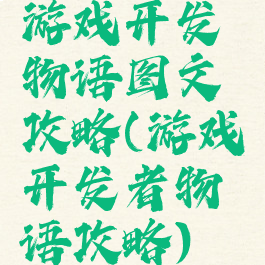 游戏开发
物语图文
攻略(游戏
开发者物
语攻略)